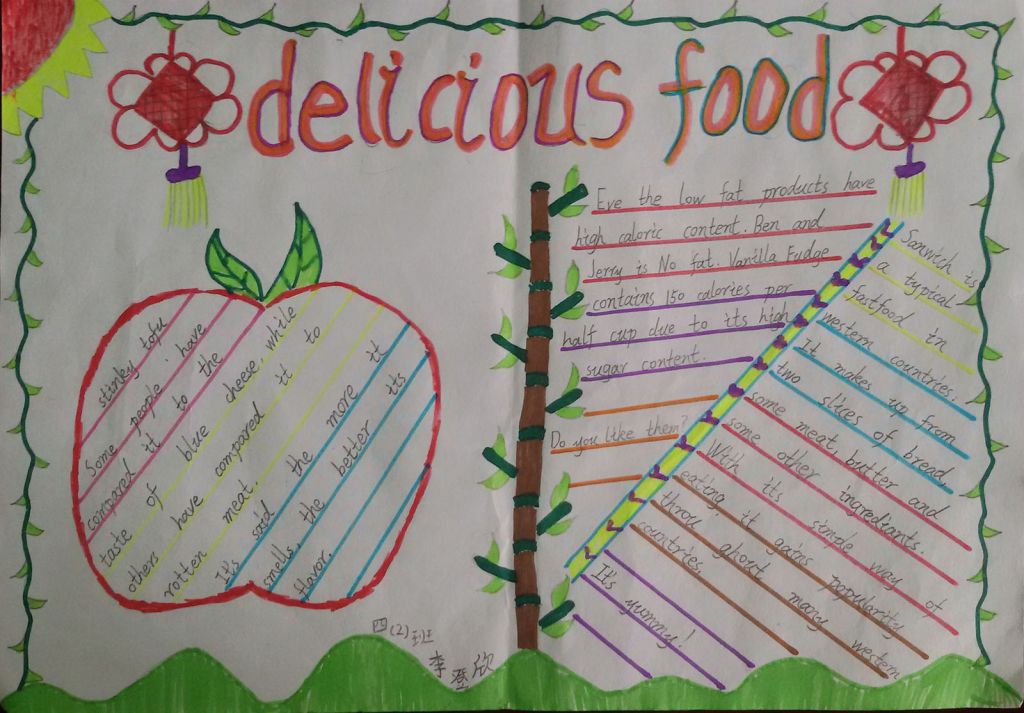 delicious food
stinky tofu
Some people have
compared it to the
taste of blue cheese, while
others have compared it to
rotten meat.
It's said the more it
smells, the better its
flavor.
Eve the low fat products have
high caloric content. Ben and
Jerry is No fat. Vanilla Fudge
contains 150 calories per
half cup due to its high
sugar content.
Do you like them?
Sanwich is
a typical
fastfood in
western countries.
It makes up from
two slices of bread,
some meat, butter and
some other ingrediants.
With its simple way of
eating, it gains popularity
throu ghout many western
countries
It's yummy!
四(2)班
李登欣